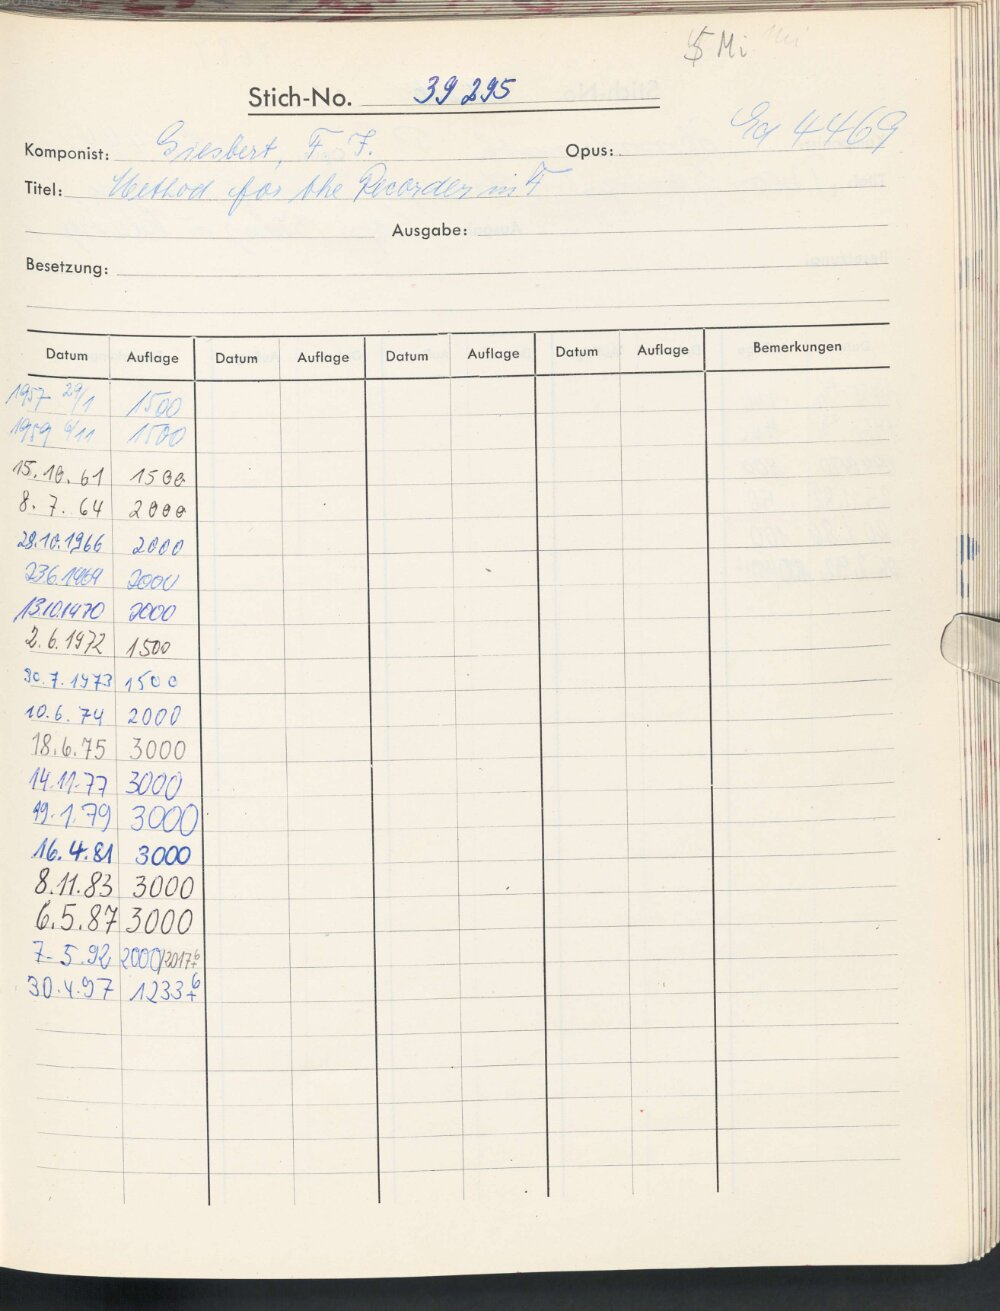 5 Mi
Stich-No. 39 295
Ed 4469
Komponist: Giesbert, F. J. Opus:
Titel: Method for the Recorder in F
Ausgabe:
Besetzung:
Datum Auflage Datum Auflage Datum Auflage Datum Auflage Bemerkungen
1957 29/1 1500
1959 6/11 1500
15.10.61 1500
8.7.64 2000
28.10.1966 2000
23.6.1969 2000
13.10.1970 2000
2.6.1972 1500
30.7.1973 1500
10.6.74 2000
18.6.75 3000
14.11.77 3000
19.1.79 3000
16.4.81 3000
8.11.83 3000
6.5.87 3000
7.5.92 2000/2017 + 6
30.4.97 1233 + 6